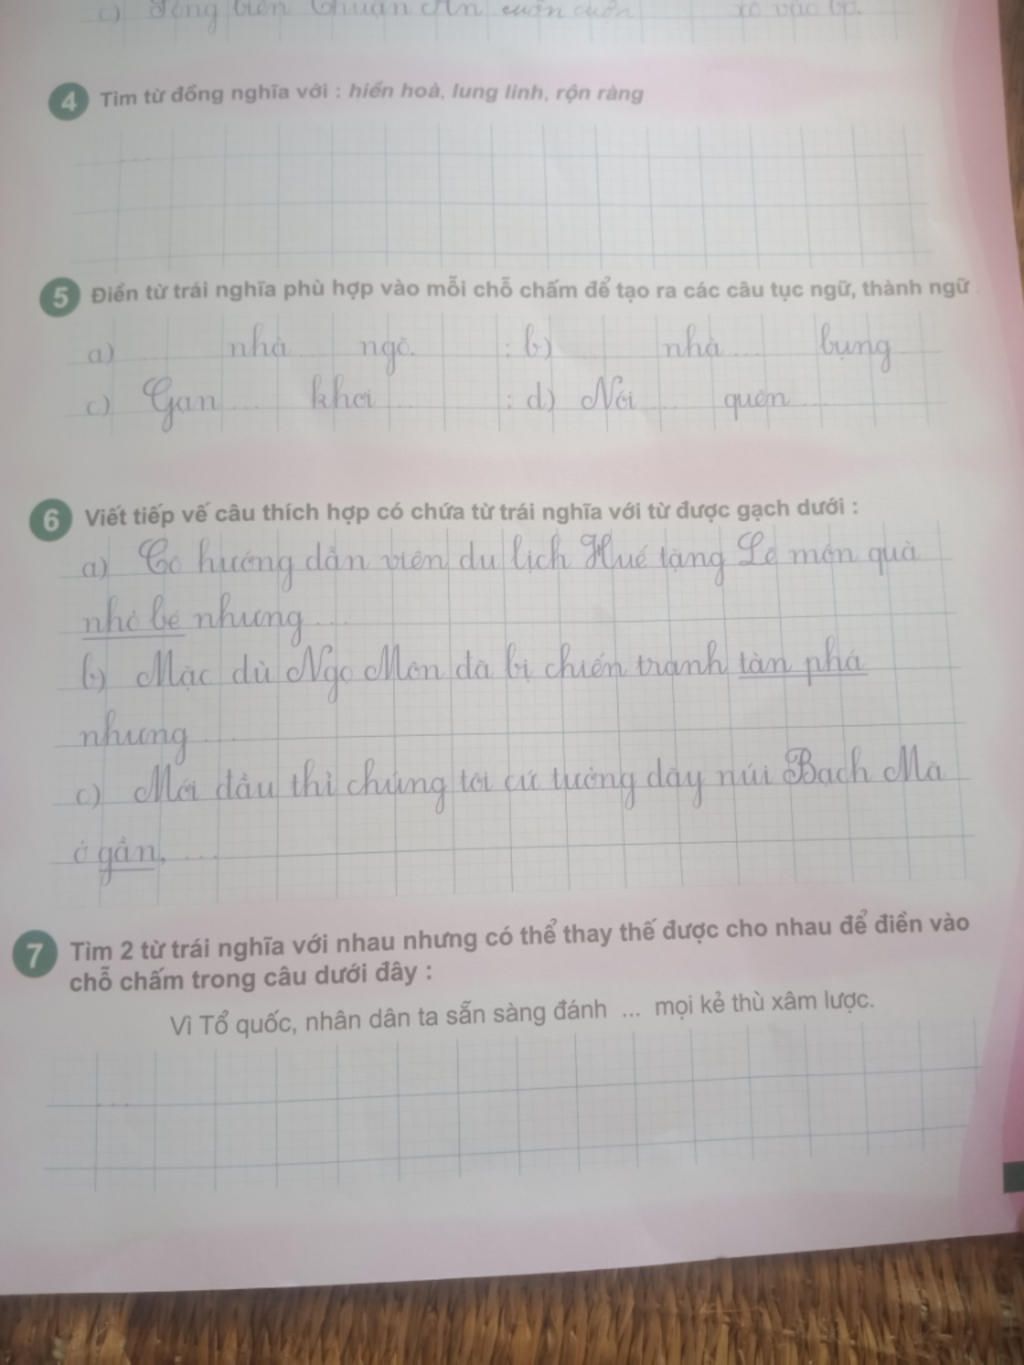 c) dòng biển Thuận An cuồn cuộn xô vào bờ.
4 Tìm từ đồng nghĩa với : hiền hoà, lung linh, rộn ràng
5 Điền từ trái nghĩa phù hợp vào mỗi chỗ chấm để tạo ra các câu tục ngữ, thành ngữ
a) ... nhà ... ngõ. : b) ... nhà ... bụng
c) Gần ... khơi ... : d) Nói ... quên ...
6 Viết tiếp vế câu thích hợp có chứa từ trái nghĩa với từ được gạch dưới :
a) Cô hướng dẫn viên du lịch Huế tặng Lê món quà
nhỏ bé nhưng ...
b) Mặc dù Ngọ Môn đã bị chiến tranh tàn phá
nhưng ...
c) Mới đầu thì chúng tôi cứ tưởng dãy núi Bạch Mã
ở gần, ...
7 Tìm 2 từ trái nghĩa với nhau nhưng có thể thay thế được cho nhau để điền vào
chỗ chấm trong câu dưới đây :
Vì Tổ quốc, nhân dân ta sẵn sàng đánh ... mọi kẻ thù xâm lược.
...